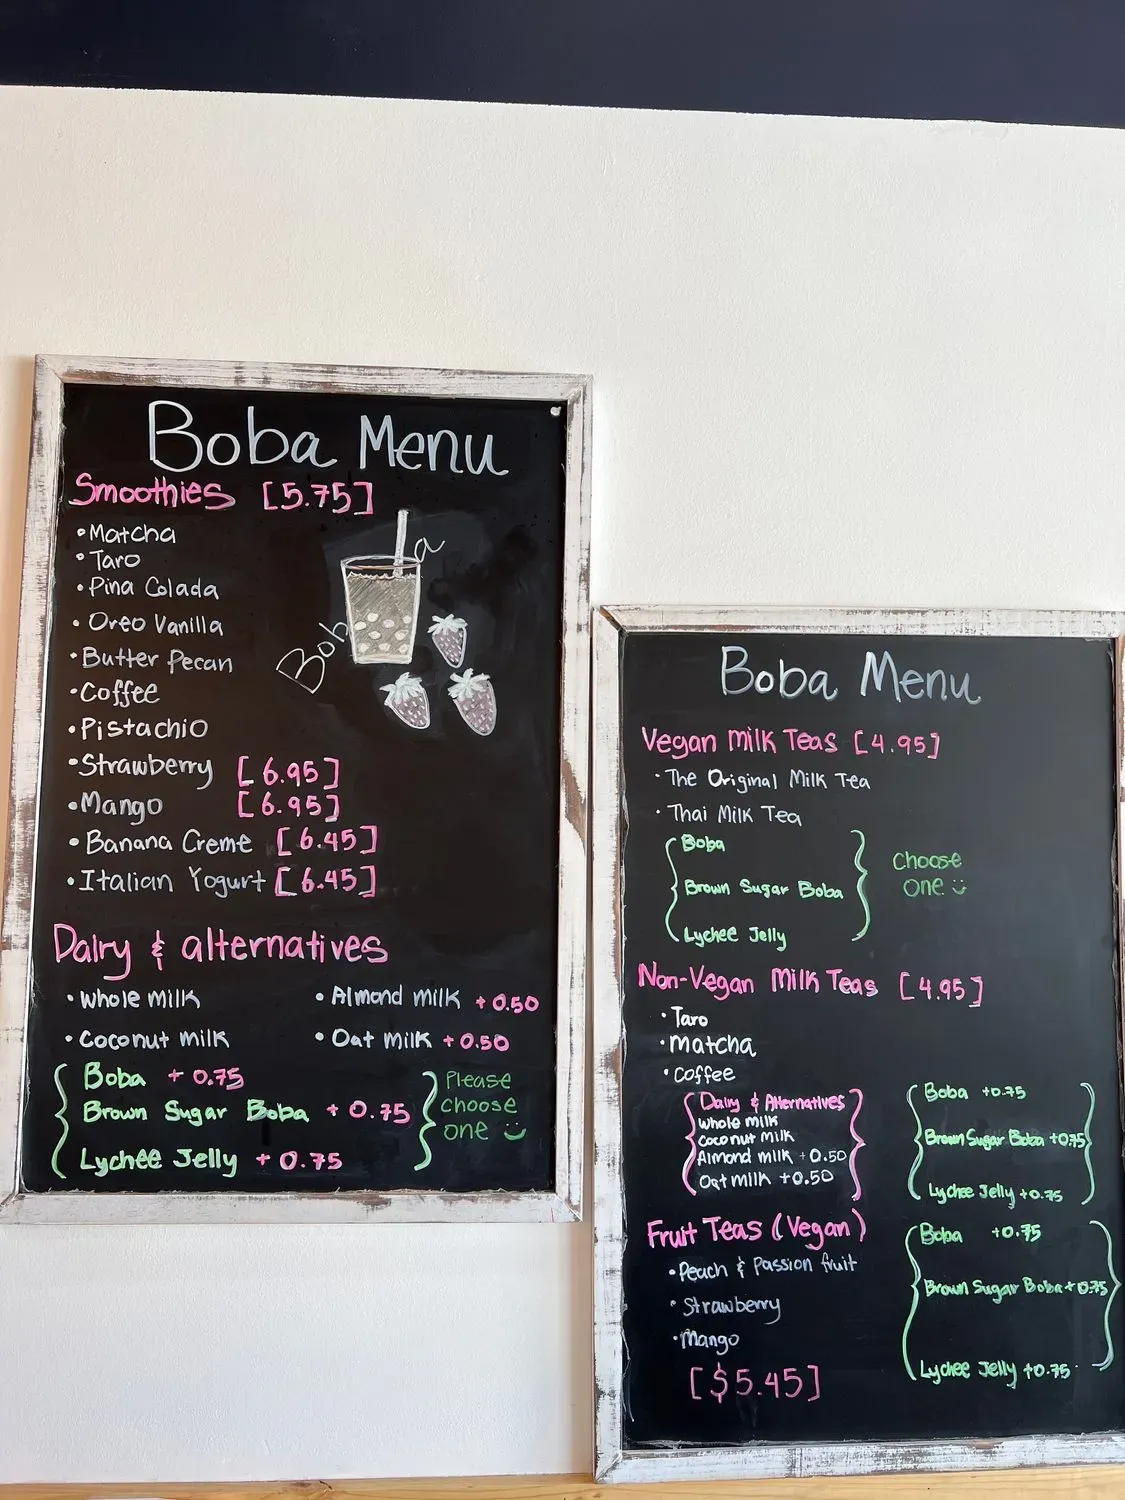 Boba Menu
Smoothies [5.75]
• Matcha
• Taro
• Pina Colada
• Oreo Vanilla
• Butter Pecan
• Coffee
• Pistachio
• Strawberry [6.95]
• Mango [6.95]
• Banana Creme [6.45]
• Italian Yogurt [6.45]
Boba
Dairy & alternatives
• Whole milk • Almond milk + 0.50
• Coconut milk • Oat milk + 0.50
Boba + 0.75
Brown Sugar Boba + 0.75
Lychee Jelly + 0.75
Please
choose
one
Boba Menu
Vegan Milk Teas [4.95]
• The Original Milk Tea
• Thai Milk Tea
Boba
Brown Sugar Boba
Lychee Jelly
Choose
one
Non-Vegan Milk Teas [4.95]
• Taro
• Matcha
• Coffee
Dairy & Alternatives
Whole milk
Coconut milk
Almond milk +0.50
Oat milk +0.50
Boba +0.75
Brown Sugar Boba +0.75
Lychee Jelly +0.75
Fruit Teas (Vegan)
• Peach & Passion fruit
• Strawberry
• Mango
[$5.45]
Boba +0.75
Brown Sugar Boba +0.75
Lychee Jelly +0.75